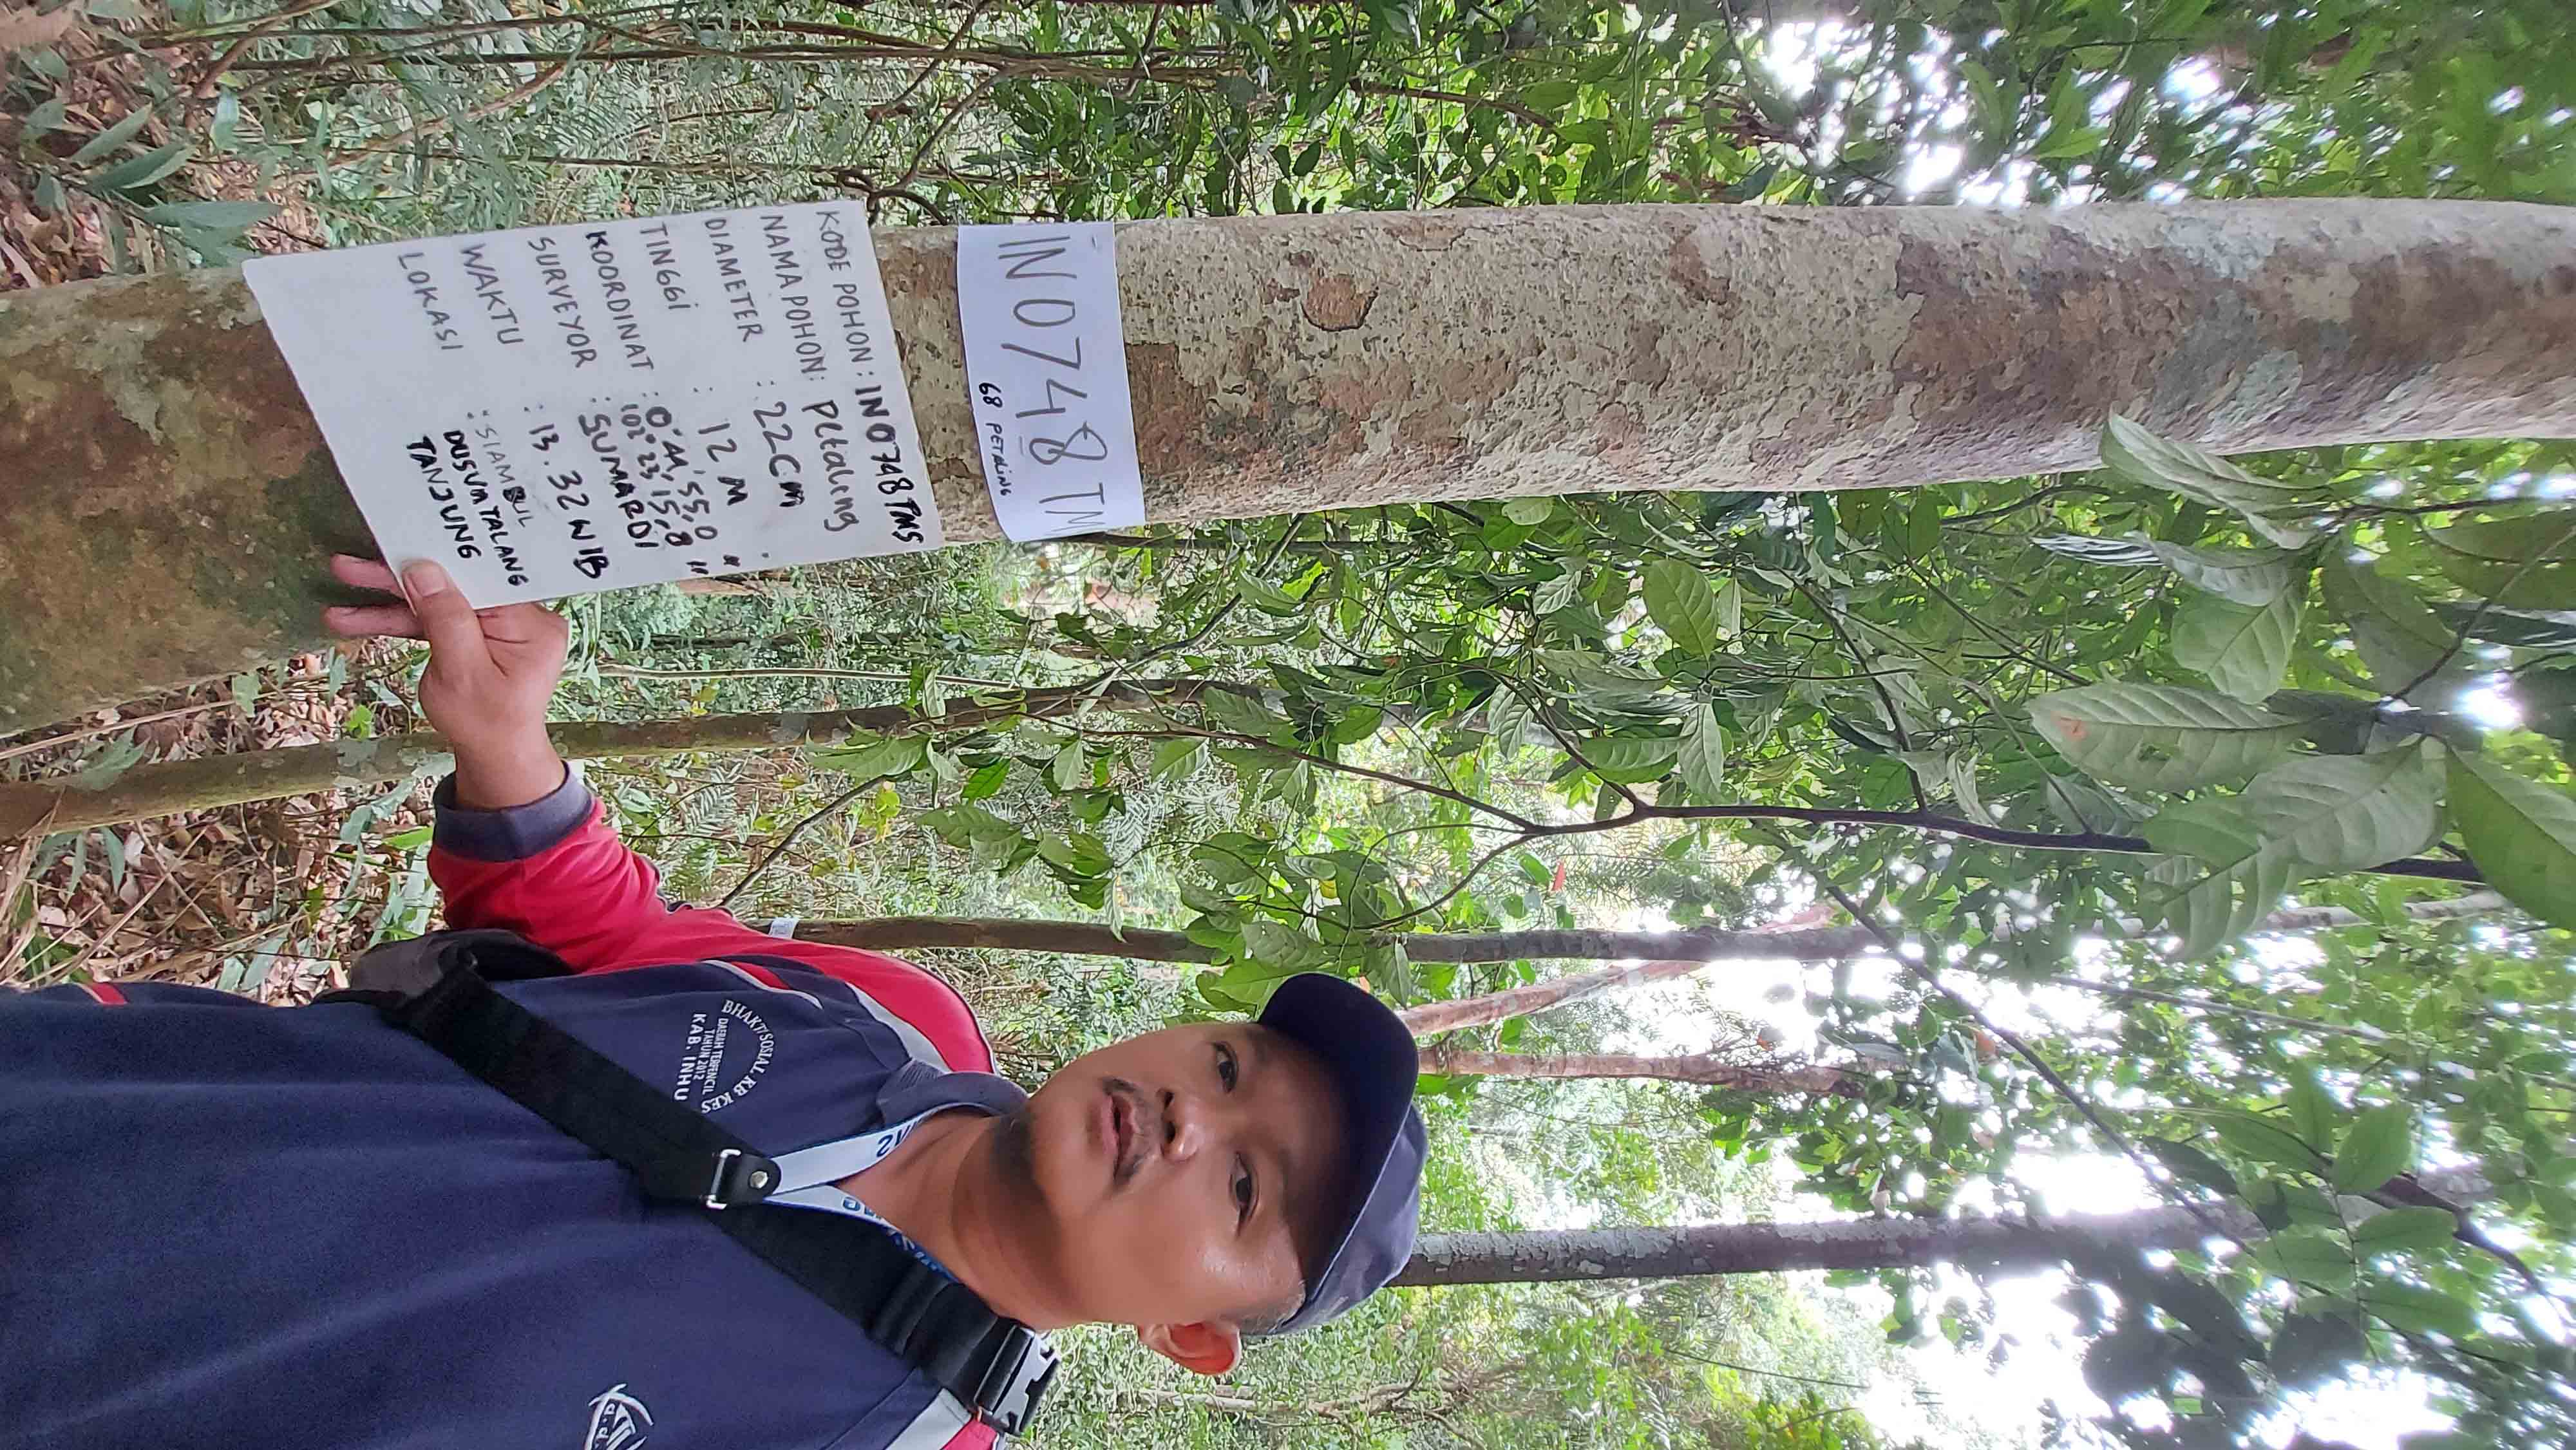 IN0748 TM
68 PETALING
KODE POHON : IN0748TMS
NAMA POHON : Petaling
DIAMETER : 22 CM
TINGGI : 12 M
KOORDINAT : 0° 44' 55,0 "
102° 23' 15,8 "
SURVEYOR : SUMARDI
WAKTU : 13.32 WIB
LOKASI : SIAMBUL
DUSUN TALANG
TANJUNG
BHAKTI SOSIAL KB KES
DAERAH TERPENCIL
TAHUN 2012
KAB. INHU